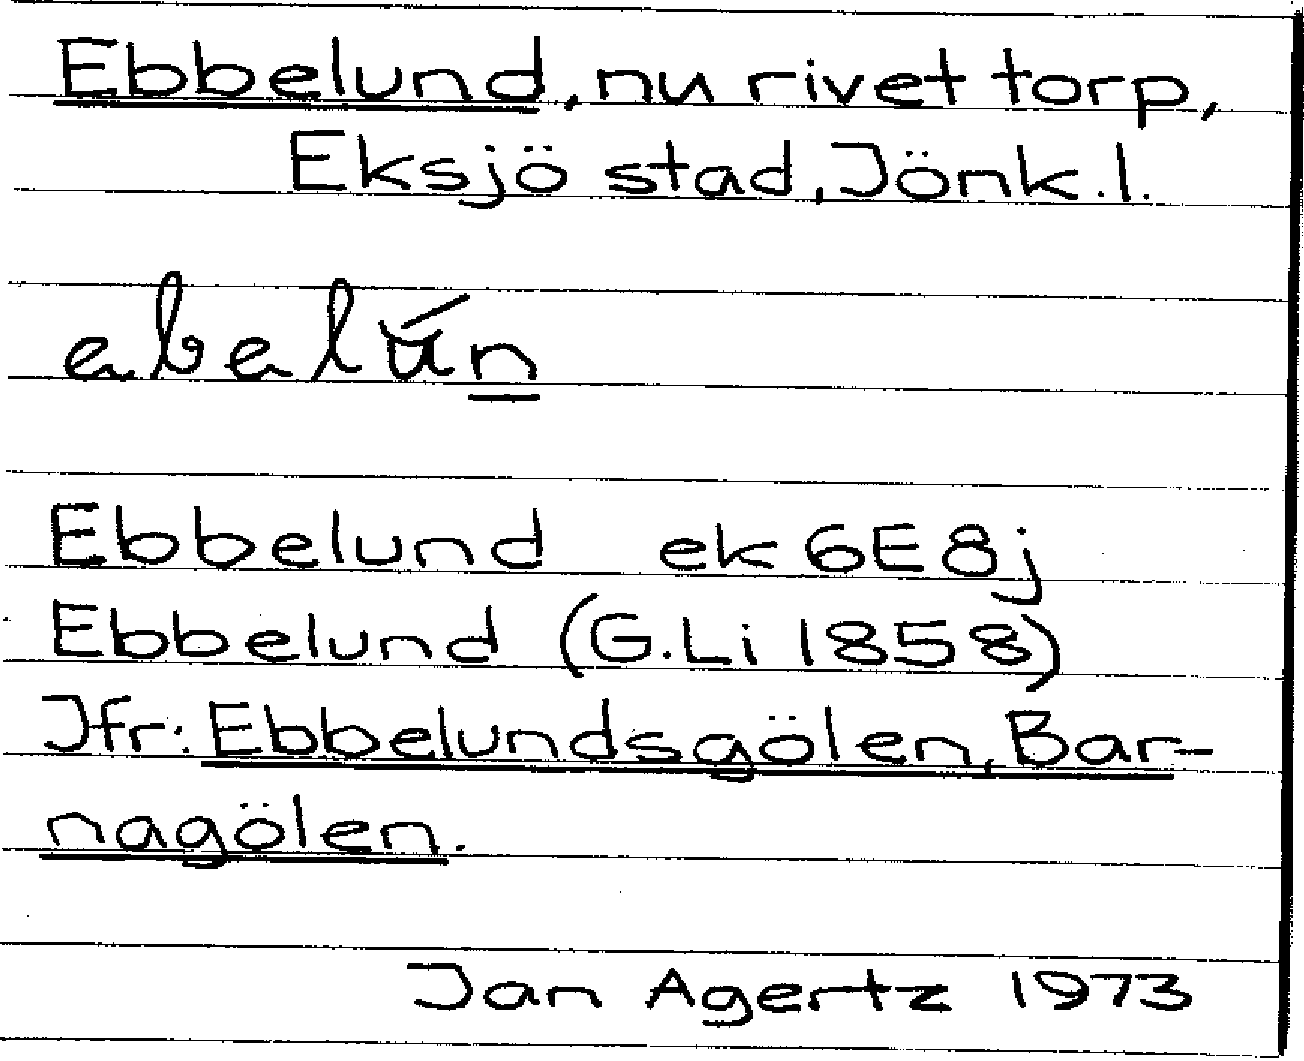 Ebbelund, nu rivet torp,
Eksjö stad, Jönk.l.
ebelún
Ebbelund ek 6E8j
Ebbelund (G.Li 1858)
Jfr: Ebbelundsgölen, Bar-
nagölen.
Jan Agertz 1973